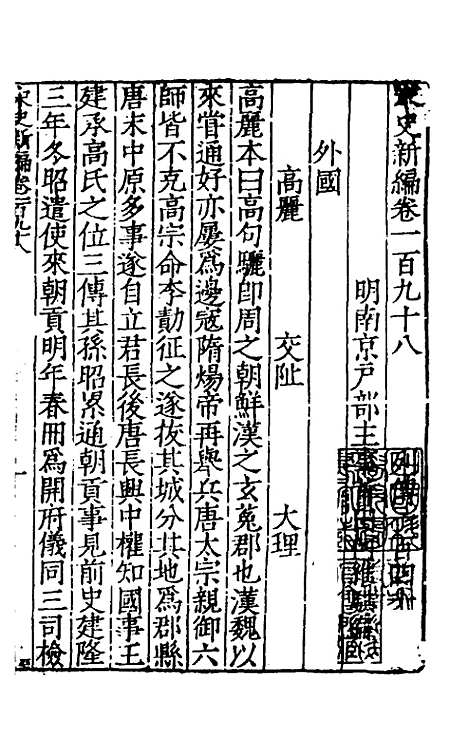 宋史新編卷一百九十八
列傳一百四十
明南京戶部主
外國
高麗 交阯 大理
高麗本曰高句驪卽周之朝鮮漢之玄菟郡也漢魏以
來嘗通好亦屢爲邊寇隋煬帝再舉兵唐太宗親御六
師皆不克高宗命李勣征之遂拔其城分其地爲郡縣
唐末中原多事遂自立君長後唐長興中權知國事王
建承高氏之位三傳其孫昭累通朝貢事見前史建隆
三年冬昭遣使來朝貢明年春冊爲開府儀同三司檢
宋史新編卷一百九十八